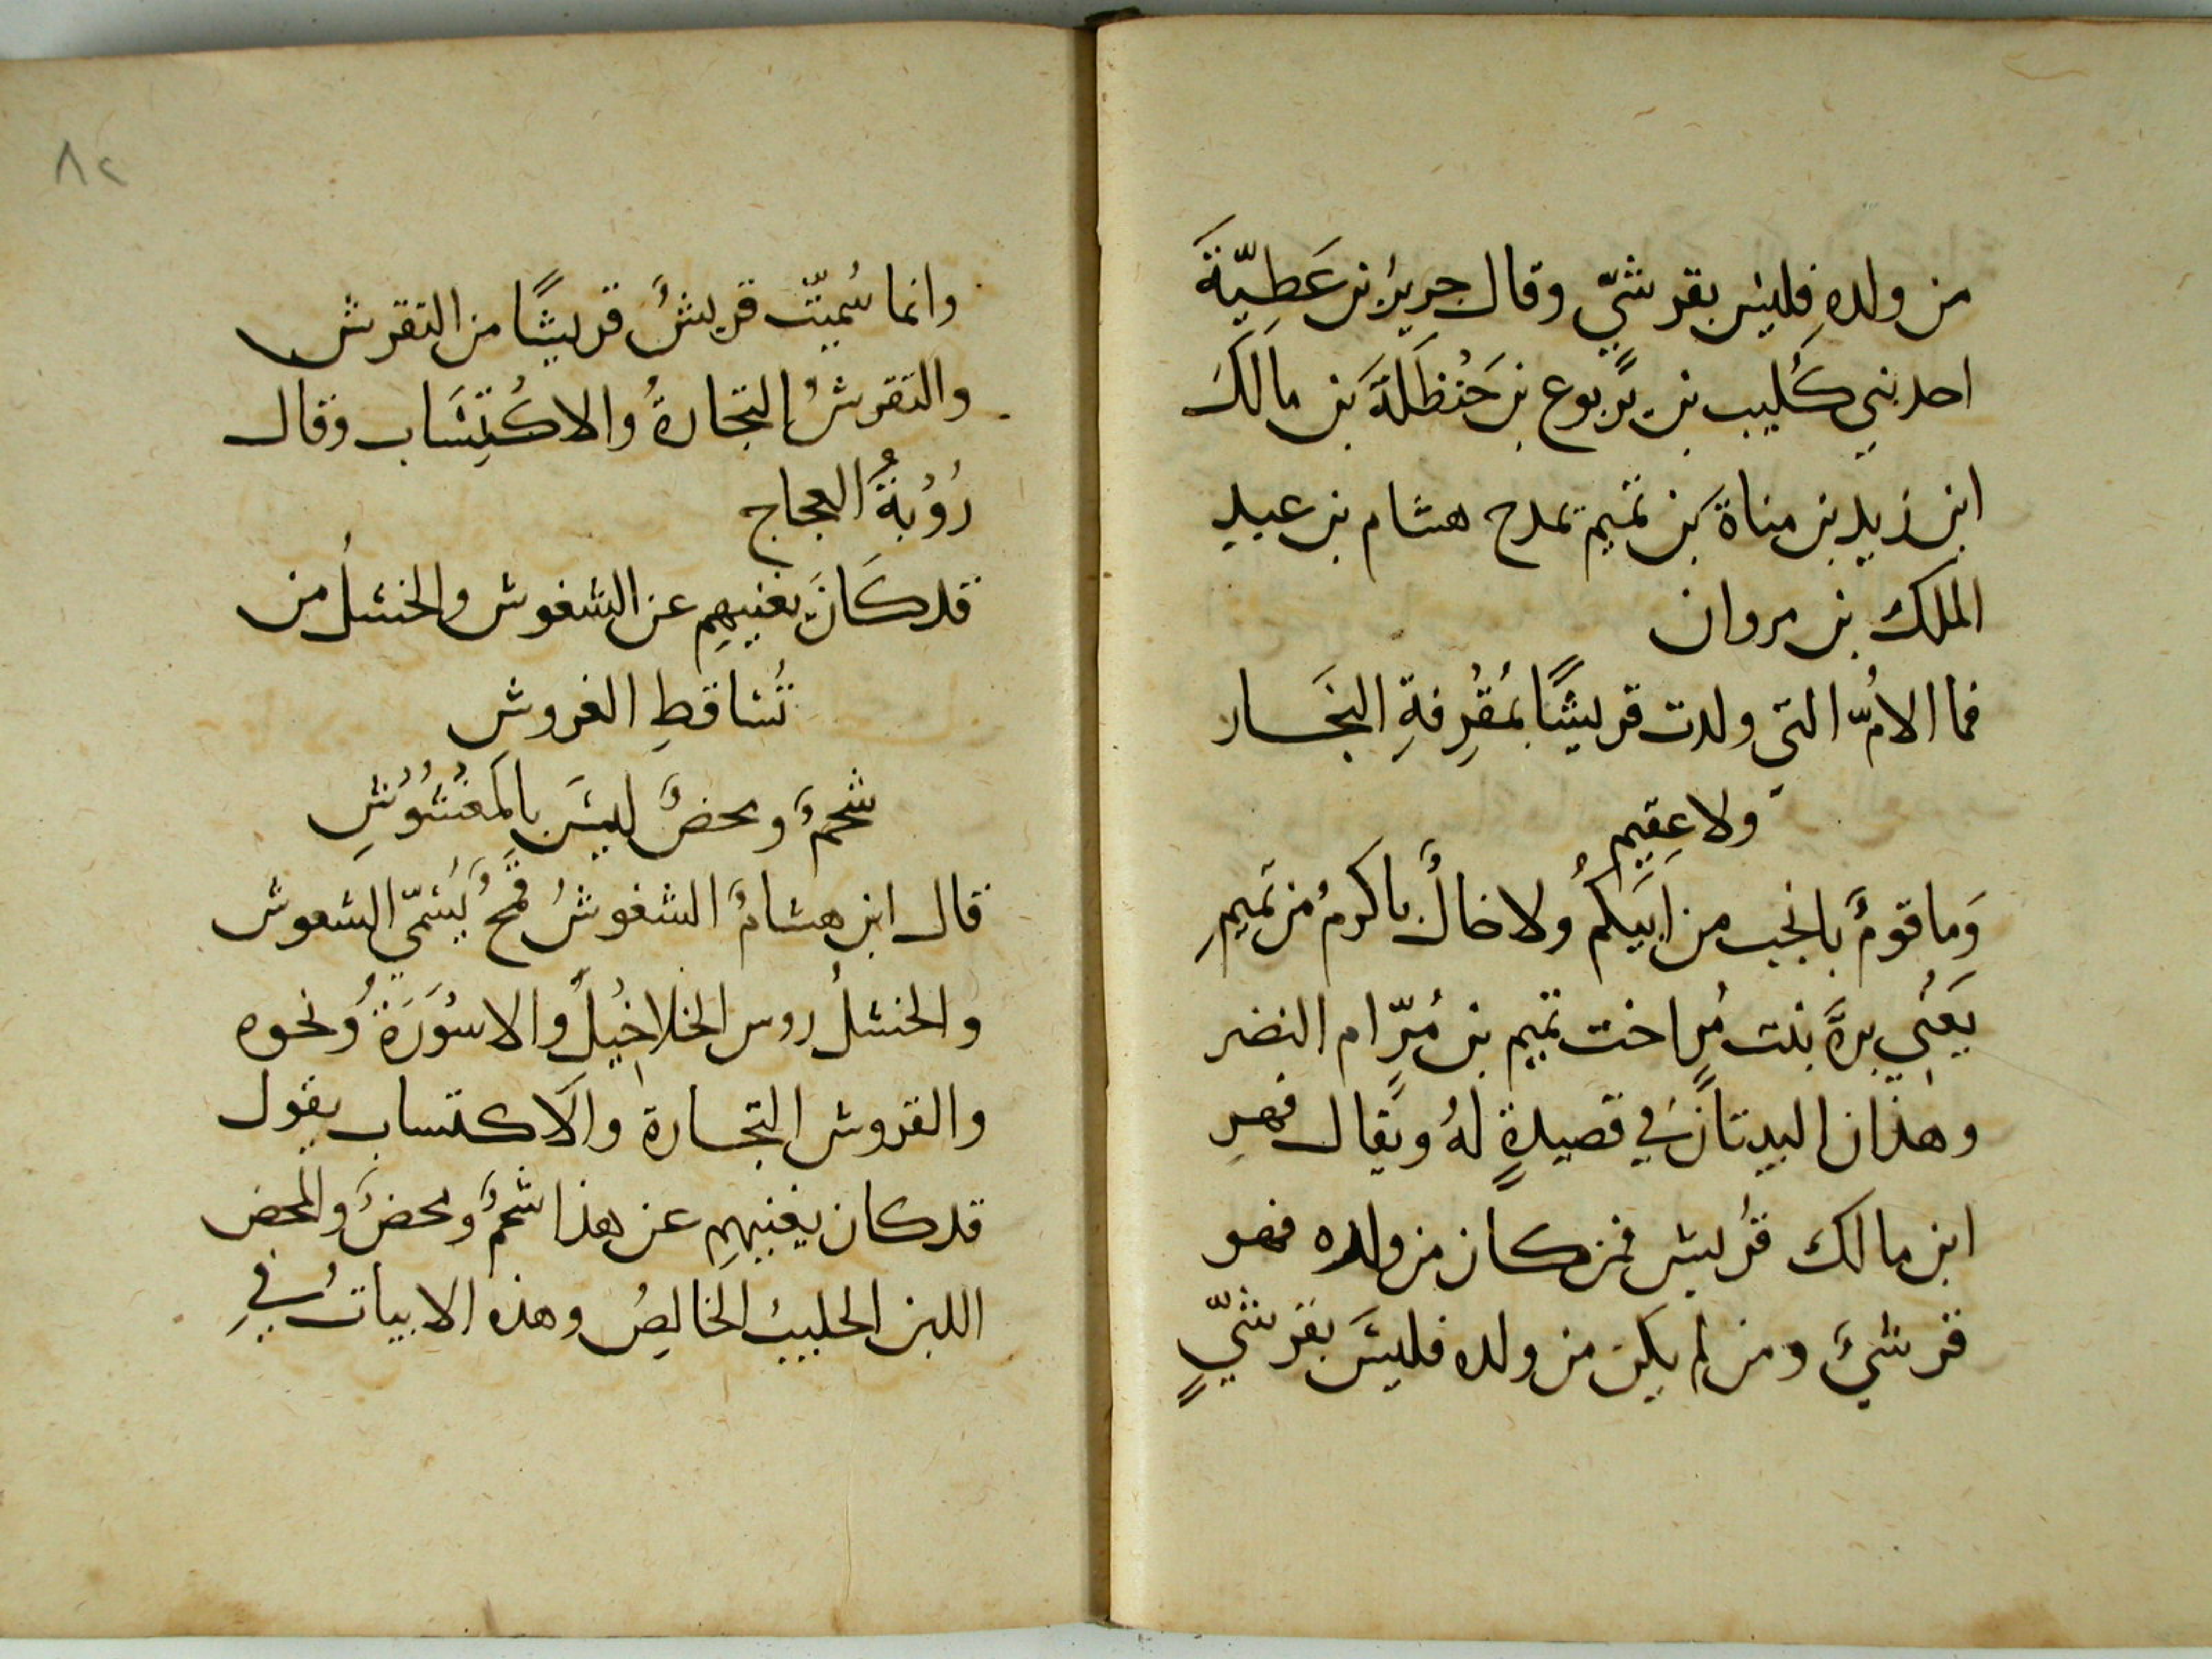 من ولدهِ فليس بقرشيّ وقال جريرُ بن عَطِيّةَ
احد بني كُليب بن يربوع بن حَنْظَلَةَ بن مالكَ
ابن زيد بن مناةَ بن تميم يمدح هشام بن عبد
الملك بن مروان
فما الامُّ التي ولدت قريشًا بمُقْرِفةِ النجَار
ولا عِقيم
وَما قومٌ بانجب من ابيكمُ ولا خالٌ باكرمُ من تميمِ
يَعْنِي برةَ بنت مُرٍ اخت تميم بن مُرّ ام النضر
وهذان البيتان في قصيدةٍ لهُ ويقال فهرِ
ابن مالك قريش فمن كان من ولده فهو
قرشيٌ ومن لم يكن من ولده فليسَ بقرشيٍّ
٨٢
وانما سُميّت قريشٌ قريشًا من التقرش
والتقرشُ التجارةُ والاكْتِسَاب وقال
رُؤْبةُ العجاج
قد كَانَ يغنيهِم عن الشغوش والخشلُ من
تُساقطِ الغروش
شحمٌ ومحضٌ ليسَ بالمَغْشُوْشِ
قال ابن هشامٌ الشغوشُ قمحٌ يُسَمّي الشعوش
والخشلُ روس الخلاخيلُ والاسْوَرَةُ ونحوه
والقروش التجارة والاكتساب يقول
قد كان يغنيهِم عن هذا شحمٌ ومحضٌ والمحض
اللبن الحليبُ الخالِصُ وهذه الابياتُ في